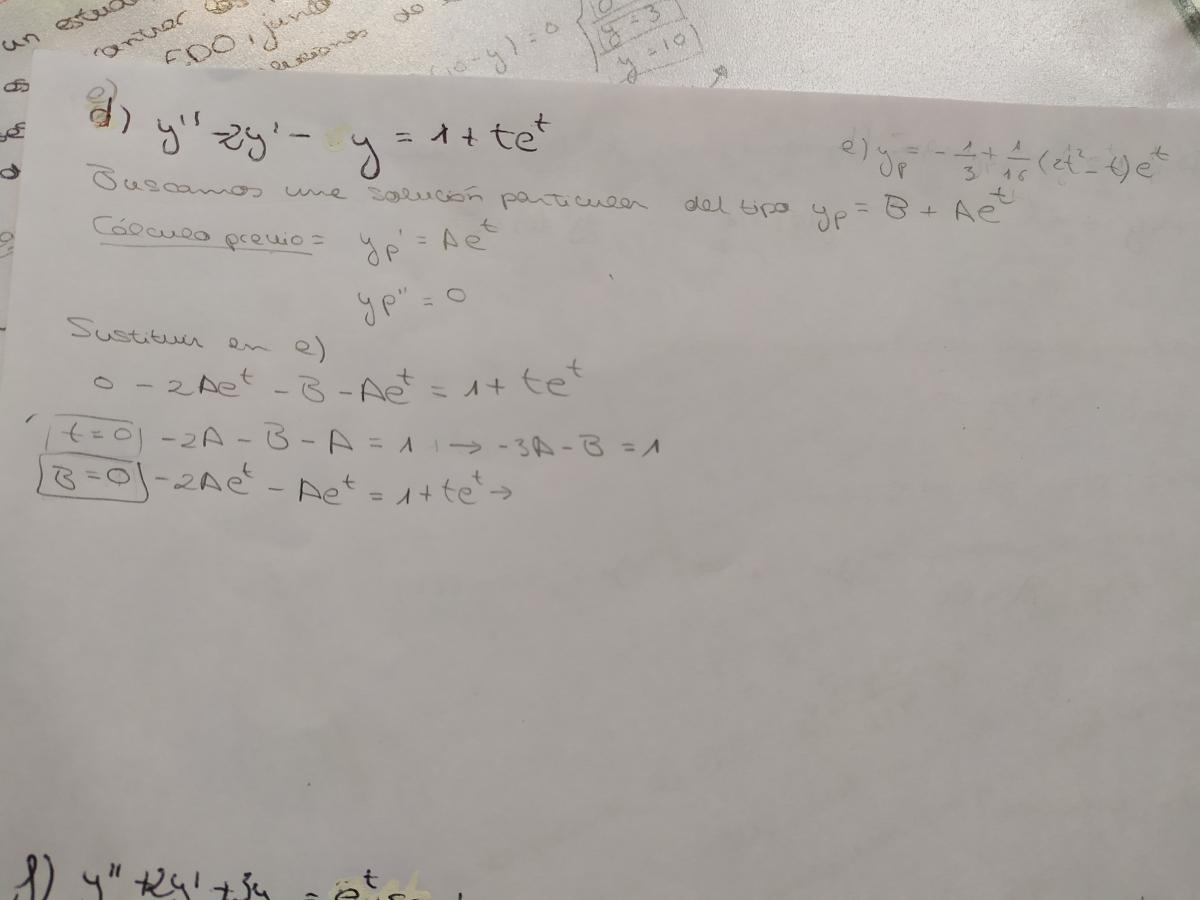 un estud
EDO, junto
(10-y) = 0
0
y = 3
y = 10
e)
d) y'' - 2y' - y = 1 + te^t
e) yp = -1/3 + 1/16 (2t² - t)e^t
Buscamos una solución particular del tipo yp = B + Ae^t
Cálculo previo = yp' = Ae^t
yp'' = 0
Sustituir en e)
0 - 2Ae^t - B - Ae^t = 1 + te^t
t=0 -2A - B - A = 1 → -3A - B = 1
B=0 -2Ae^t - Ae^t = 1 + te^t →
f) y'' + 2y' + 3y = e^t